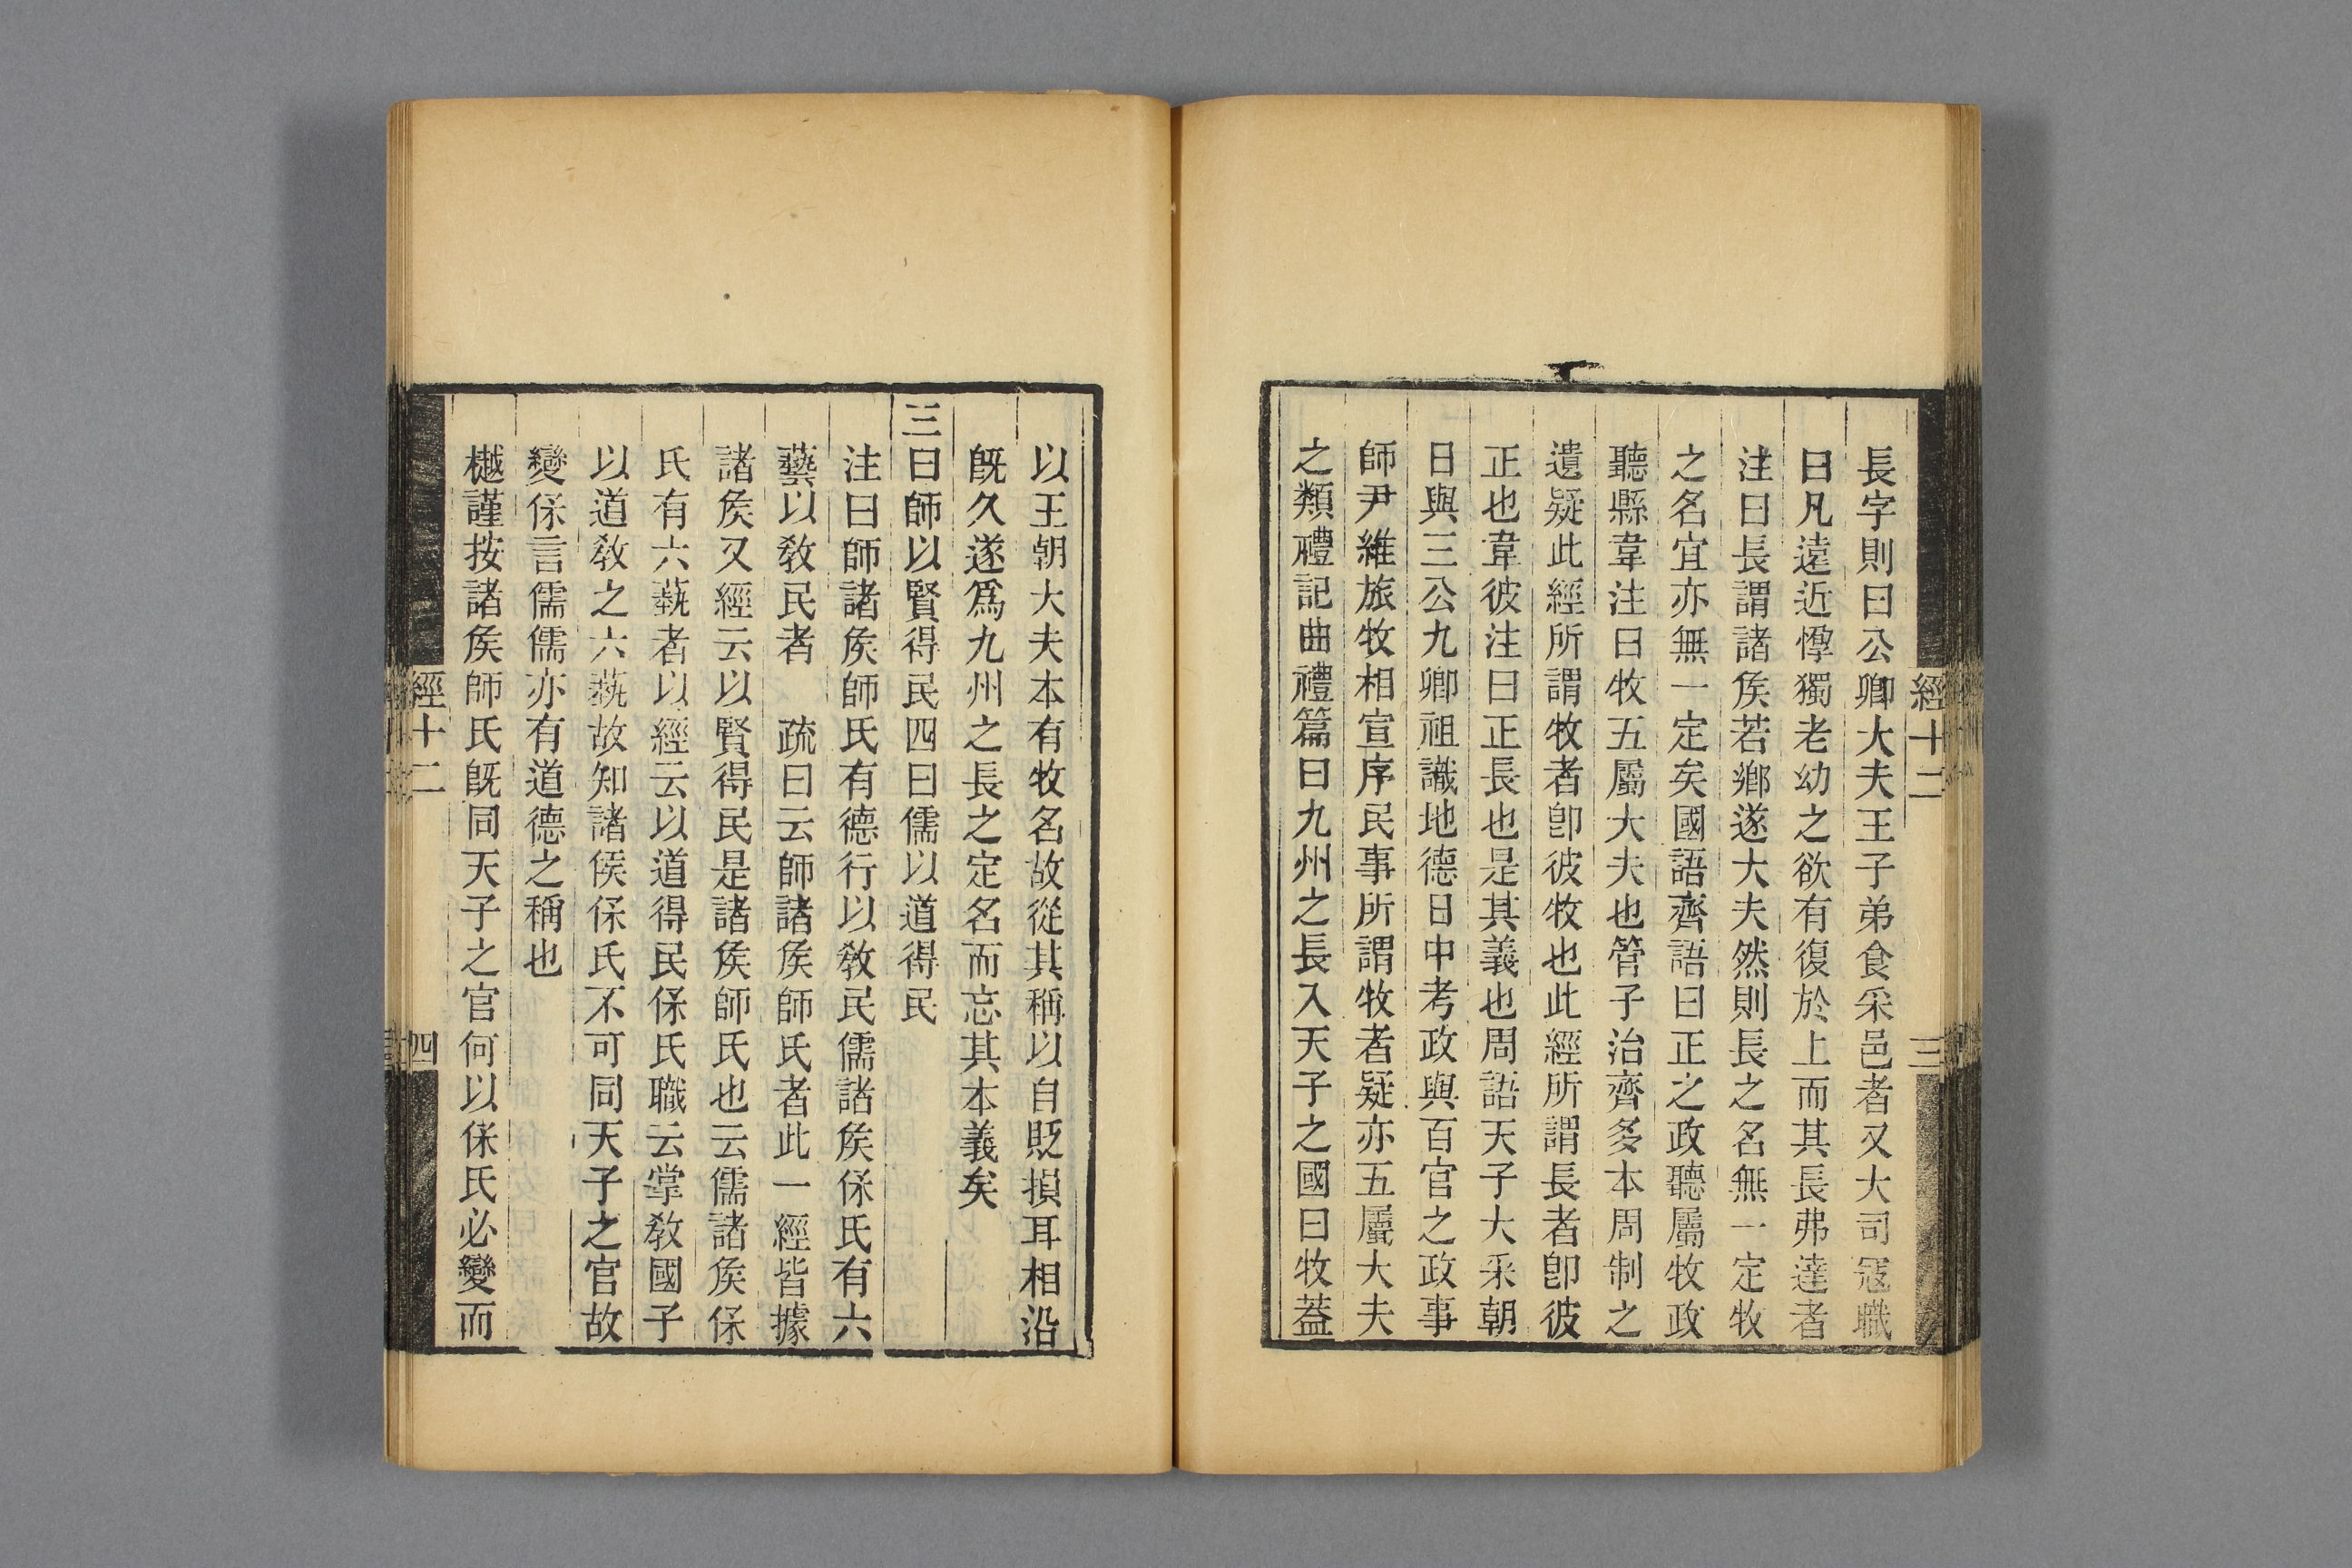 長字則曰公卿大夫王子弟食采邑者又大司寇職
曰凡遠近惸獨老幼之欲有復於上而其長弗達者
注曰長謂諸矦若鄕遂大夫然則長之名無一定牧
之名宜亦無一定矣國語齊語曰正之政聽屬牧政
聽縣韋注曰牧五屬大夫也管子治齊多本周制之
遺疑此經所謂牧者卽彼牧也此經所謂長者卽彼
正也韋彼注曰正長也是其義也周語天子大采朝
日與三公九卿祖識地德日中考政與百官之政事
師尹維旅牧相宣序民事所謂牧者疑亦五屬大夫
之類禮記曲禮篇曰九州之長入天子之國曰牧蓋
經十二
三
以王朝大夫本有牧名故從其稱以自貶損耳相沿
旣久遂爲九州之長之定名而忘其本義矣
三曰師以賢得民四曰儒以道得民
注曰師諸矦師氏有德行以敎民儒諸矦保氏有六
藝以敎民者　疏曰云師諸矦師氏者此一經皆據
諸矦又經云以賢得民是諸矦師氏也云儒諸矦保
氏有六蓺者以經云以道得民保氏職云掌敎國子
以道敎之六蓺故知諸侯保氏不可同天子之官故
變保言儒儒亦有道德之稱也
樾謹按諸矦師氏旣同天子之官何以保氏必變而
經十二
四